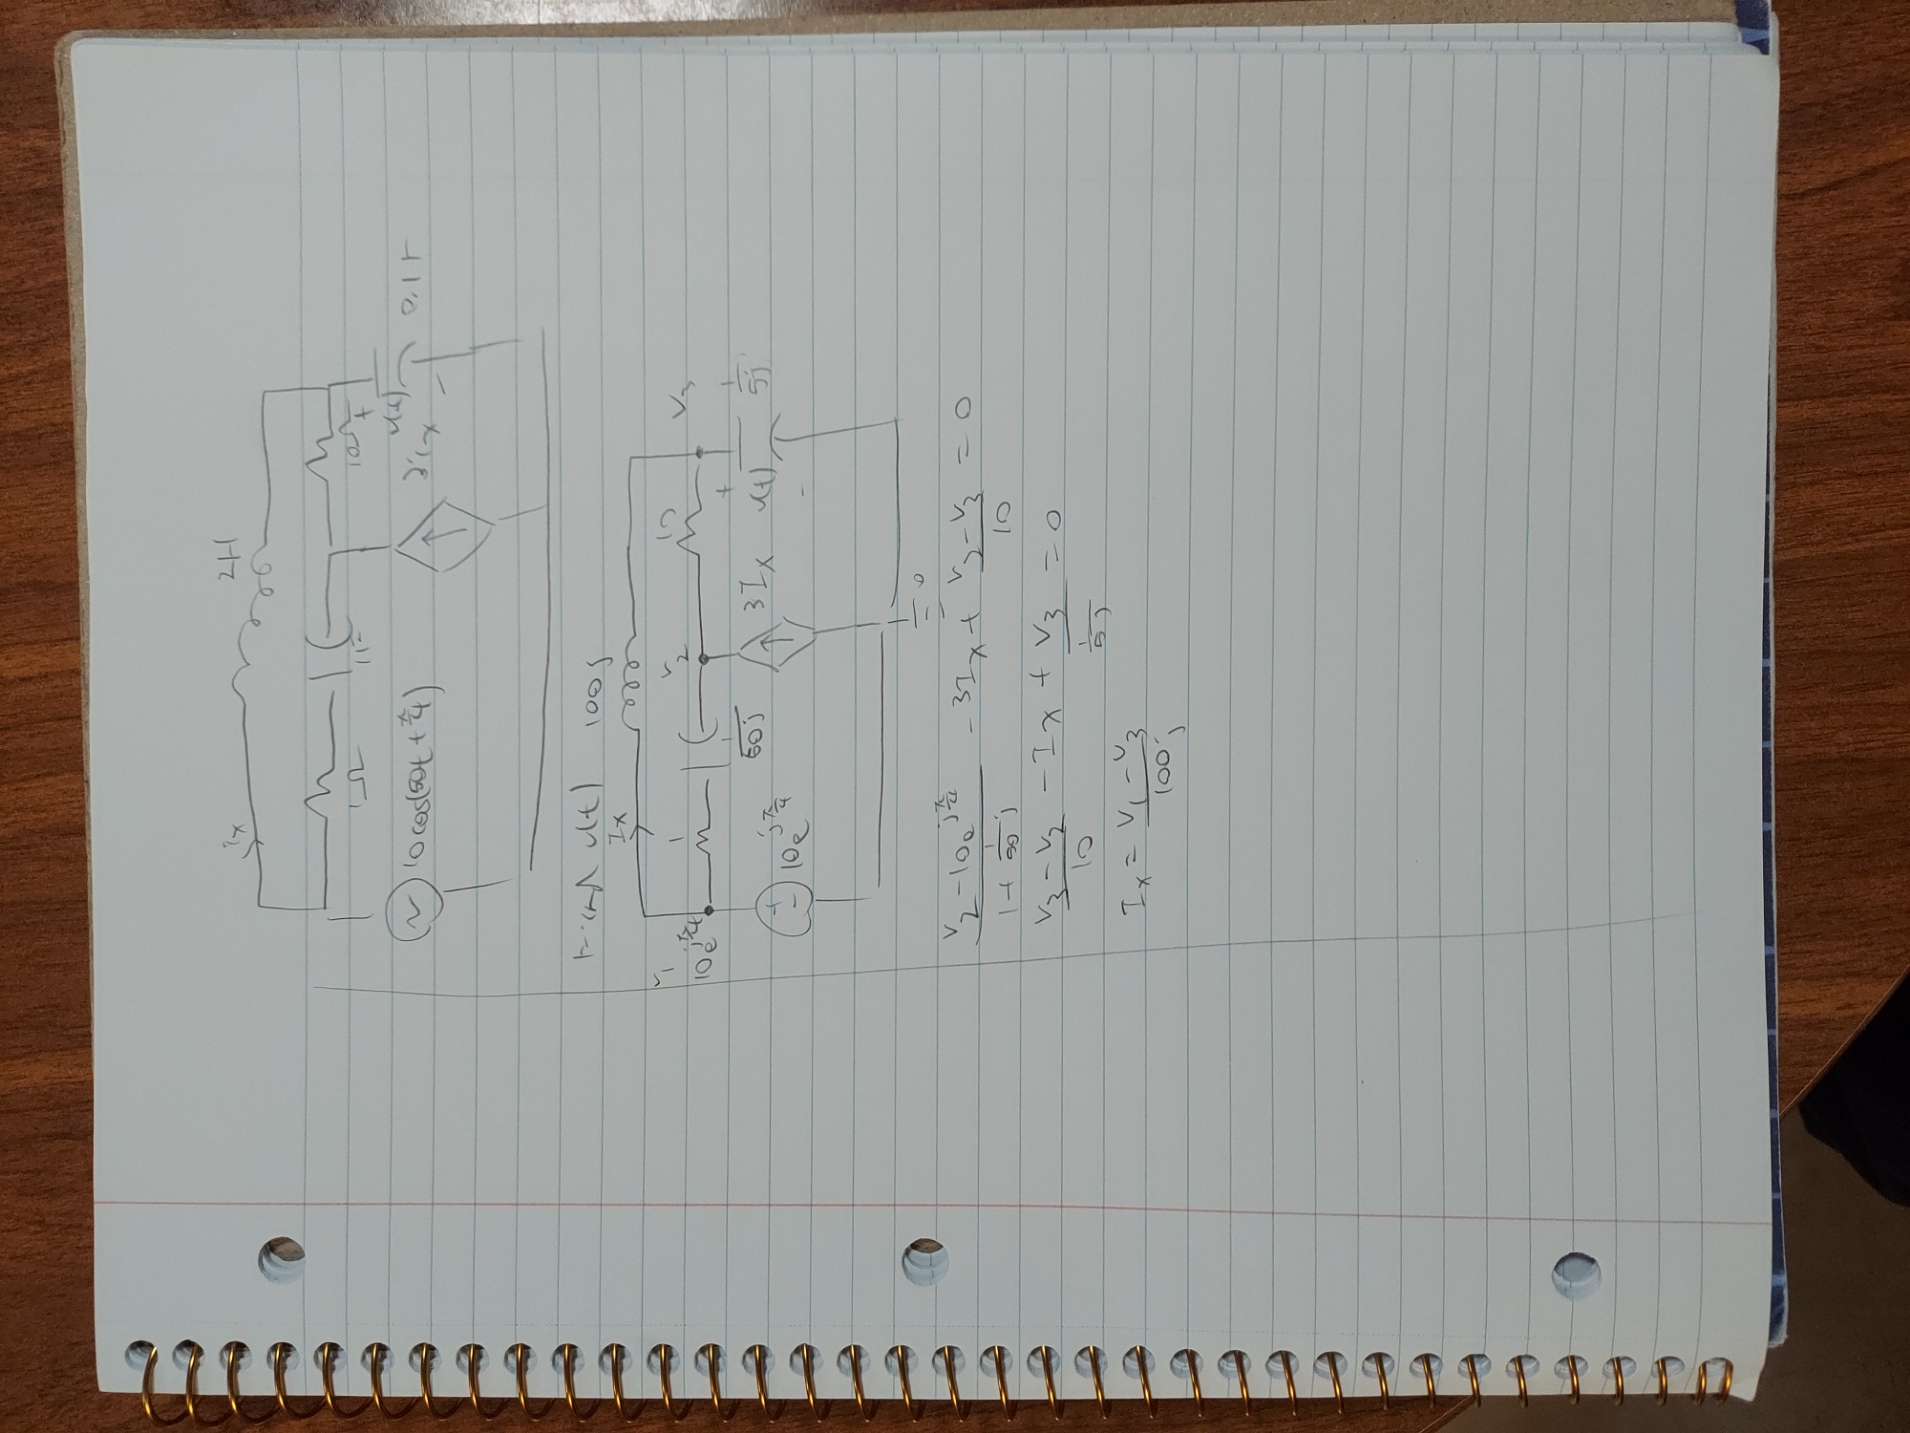 ix
2H
1Ω
1F
10Ω
10cos(50t + π/4)
3ix
+
v(t)
-
0.1F
Find v(t)
100j
Ix
V1
10e^(jπ/4)
1
V2
10
V3
1/50j
+
-
10e^(jπ/4)
3Ix
+
v(t)
-
1/5j
0
(V2 - 10e^(jπ/4))/(1 + 1/50j) - 3Ix + (V2 - V3)/10 = 0
(V3 - V2)/10 - Ix + V3/(1/5j) = 0
Ix = (V1 - V3)/100j